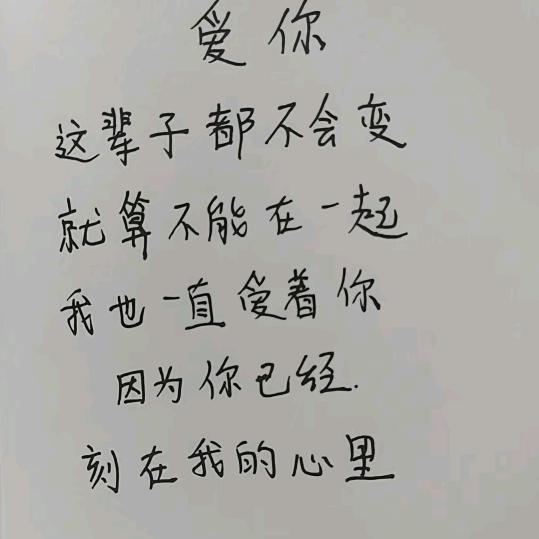 爱你
这辈子都不会变
就算不能在一起
我也一直爱着你
因为你已经.
刻在我的心里